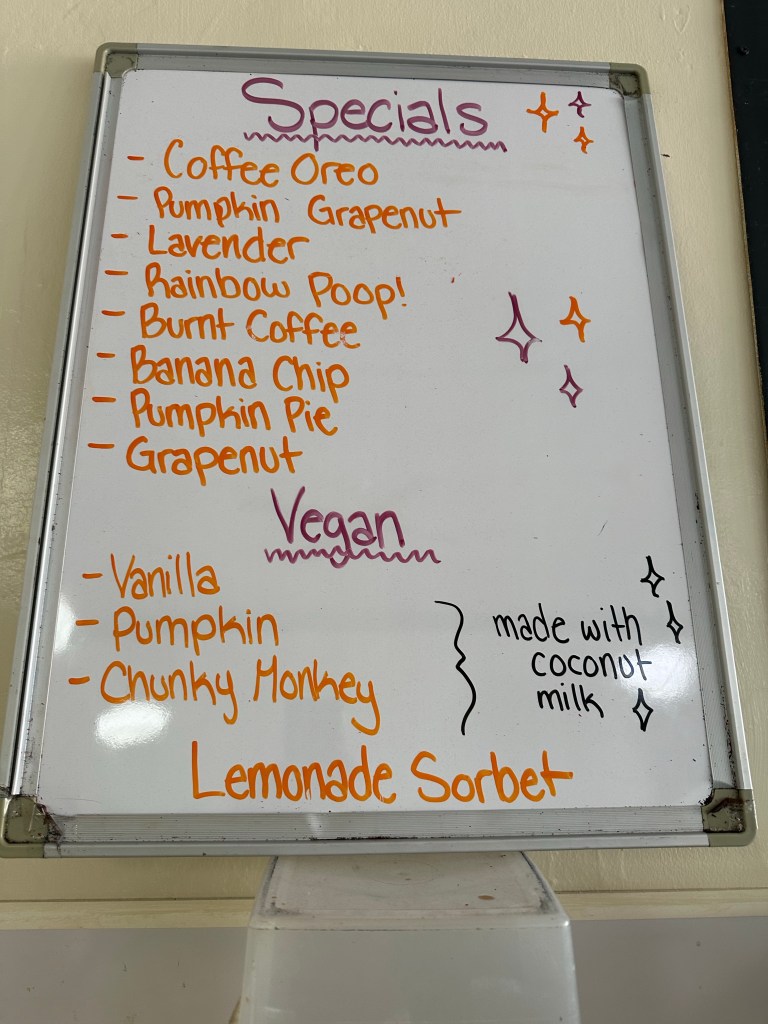 Specials
- Coffee Oreo
- Pumpkin Grapenut
- Lavender
- Rainbow Poop!
- Burnt Coffee
- Banana Chip
- Pumpkin Pie
- Grapenut
Vegan
- Vanilla
- Pumpkin
- Chunky Monkey
made with
coconut
milk
Lemonade Sorbet